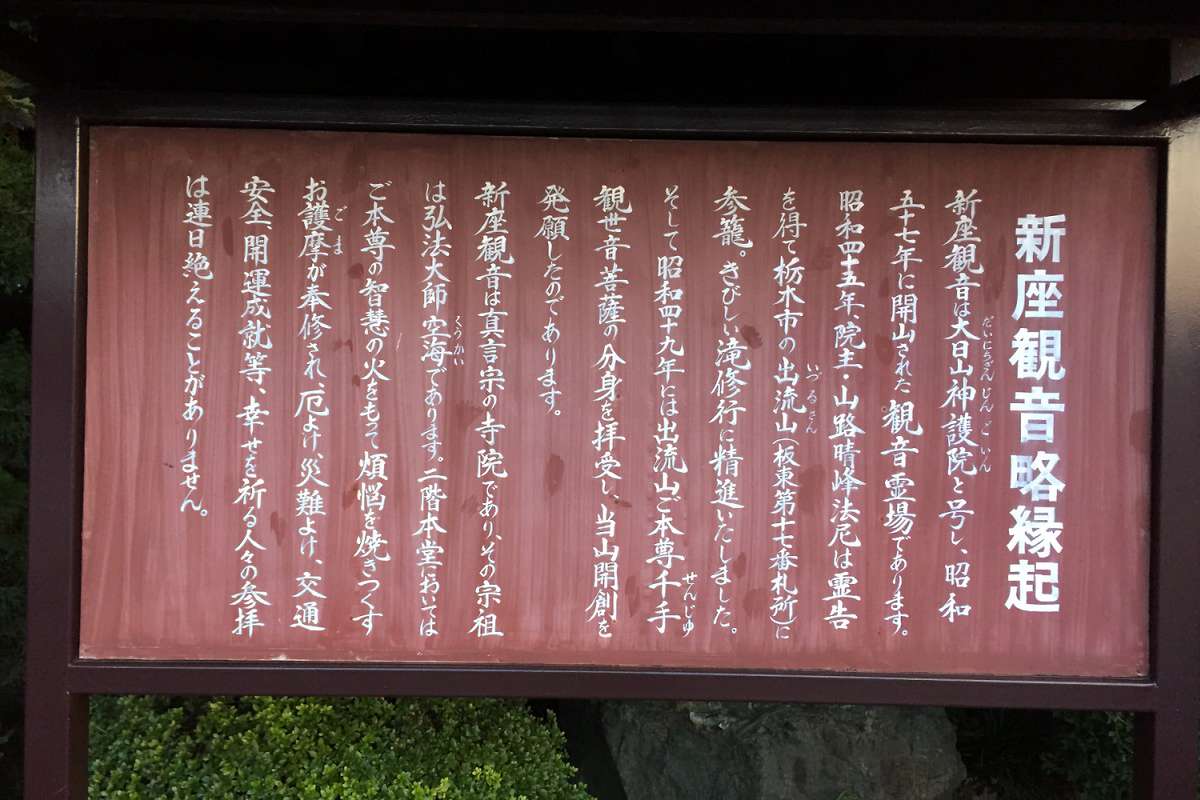 新座観音略縁起
新座観音は大日山神護院と号し、昭和
だいにちざんじんごいん
五十七年に開山された観音霊場であります。
昭和四十五年、院主・山路晴峰法尼は霊告
を得て栃木市の出流山(板東第十七番札所)に
いづるさん
参籠。きびしい滝修行に精進いたしました。
そして昭和四十九年には出流山ご本尊千手
せんじゅ
観世音菩薩の分身を拝受し、当山開創を
発願したのであります。
新座観音は真言宗の寺院であり、その宗祖
は弘法大師空海であります。二階本堂においては
くうかい
ご本尊の智慧の火をもって煩悩を焼きつくす
お護摩が奉修され、厄よけ、災難よけ、交通
ごま
安全、開運成就等、幸せを祈る人々の参拝
は連日絶えることがありません。